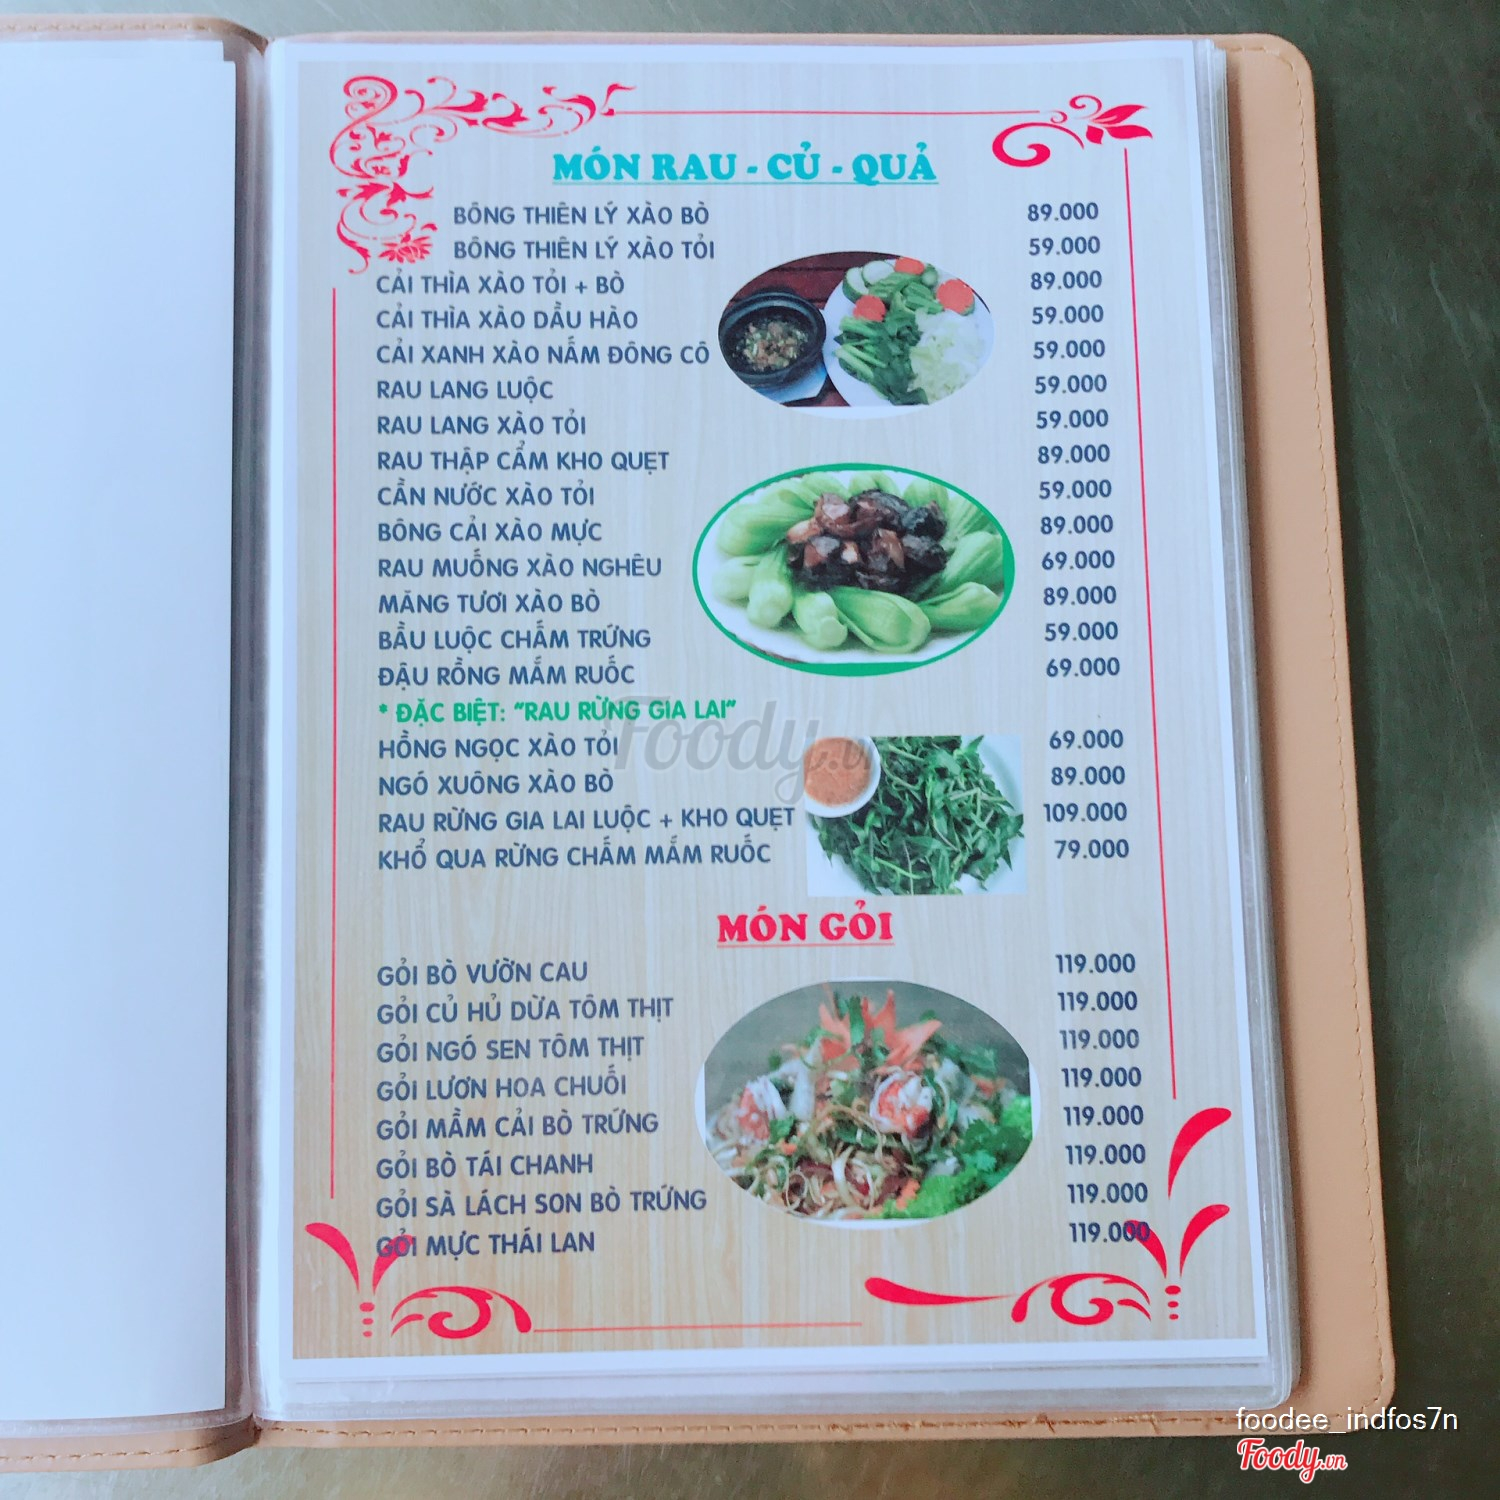 MÓN RAU - CỦ - QUẢ
BÔNG THIÊN LÝ XÀO BÒ 89.000
BÔNG THIÊN LÝ XÀO TỎI 59.000
CẢI THÌA XÀO TỎI + BÒ 89.000
CẢI THÌA XÀO DẦU HÀO 59.000
CẢI XANH XÀO NẤM ĐÔNG CÔ 59.000
RAU LANG LUỘC 59.000
RAU LANG XÀO TỎI 59.000
RAU THẬP CẨM KHO QUẸT 89.000
CẦN NƯỚC XÀO TỎI 59.000
BÔNG CẢI XÀO MỰC 89.000
RAU MUỐNG XÀO NGHÊU 69.000
MĂNG TƯƠI XÀO BÒ 89.000
BẦU LUỘC CHẤM TRỨNG 59.000
ĐẬU RỒNG MẮM RUỐC 69.000
* ĐẶC BIỆT: "RAU RỪNG GIA LAI"
HỒNG NGỌC XÀO TỎI 69.000
NGÓ XUÔNG XÀO BÒ 89.000
RAU RỪNG GIA LAI LUỘC + KHO QUẸT 109.000
KHỔ QUA RỪNG CHẤM MẮM RUỐC 79.000
MÓN GỎI
GỎI BÒ VƯỜN CAU 119.000
GỎI CỦ HỦ DỪA TÔM THỊT 119.000
GỎI NGÓ SEN TÔM THỊT 119.000
GỎI LƯƠN HOA CHUỐI 119.000
GỎI MẦM CẢI BÒ TRỨNG 119.000
GỎI BÒ TÁI CHANH 119.000
GỎI SÀ LÁCH SON BÒ TRỨNG 119.000
GỎI MỰC THÁI LAN 119.000
Foody.vn
foodee_indfos7n
Foody.vn